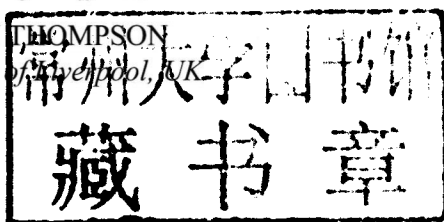 THOMPSON
of Liverpool, UK
常州大学图书馆
藏书章